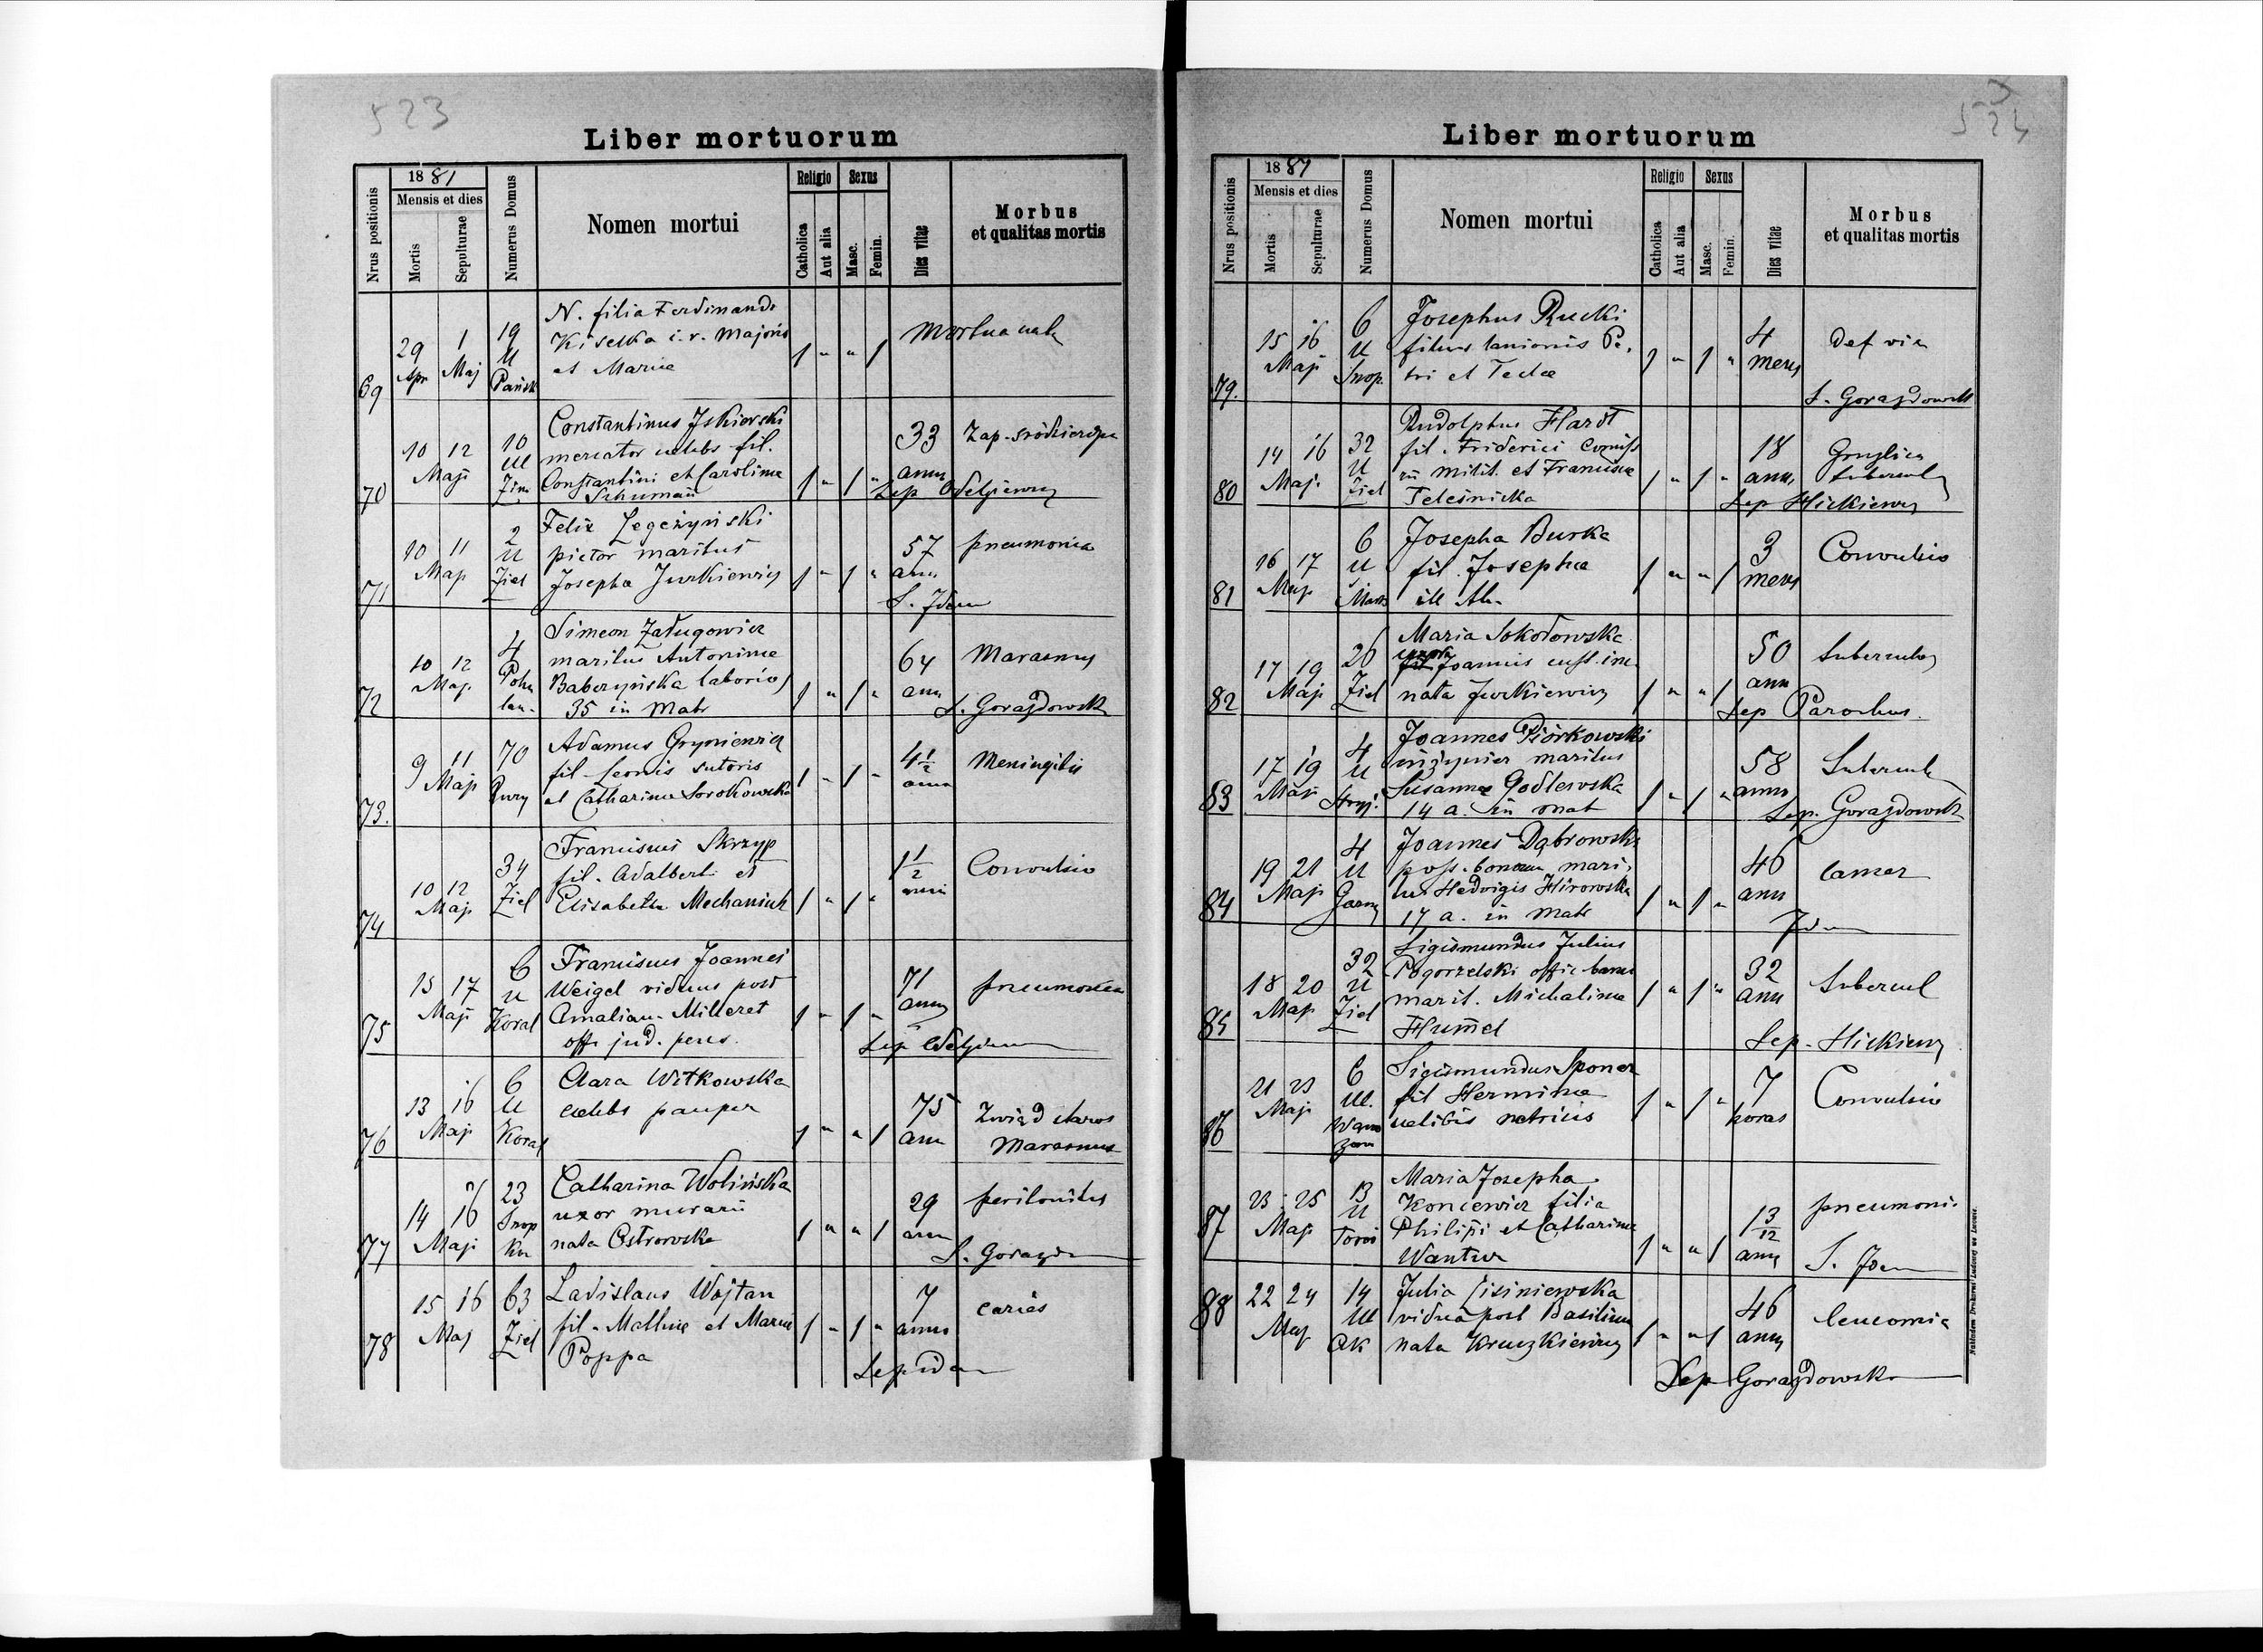 523
Liber mortuorum
Nrus positionis
1881
Mensis et dies
Mortis
Sepulturae
Numerus Domus
Nomen mortui
Religio
Catholica
Aut alia
Sexus
Masc.
Femin.
Dies vitae
Morbus
et qualitas mortis
69
29 1
Apr Maj
19
U
Pańsk
N. filia Ferdinandi
Kiselka i. r. Majoris
et Mariae
1 " " 1
Mortua nata
70
10 12
Maji
10
Ul
Zim
Constantinus Iskierski
mercator caelebs fil.
Constantini et Carolina
Schuman
1 " 1 "
33
ann
Sep Odelgiewicz
71
10 11
Maji
2
U
Ziel
Felix Legeżyński
pictor maritus
Josepha Jurkiewicz
1 " 1 "
57
ann
pneumonia
S. Idem
72
10 12
Maji
4
Simeon Załugowicz
maritus Antonina
Babczyńska
35 in Matr
1 " 1 "
64
ann
Marasmus
S. Gorazdowski
73.
9 11
Maji
70
Adamus Gryniewicz
fil. Leonis sutoris
et Catharina Sorokowska
1 " 1 "
4 1/2
anno
Meningitis
74
10 12
Maji
34
Ziel
Franciscus Skrzyp
fil. Adalberti et
Elisabetha Mechaniuk
1 " 1 "
1 1/2
anni
Convulsio
75
15 17
Maji
6
u
Koral
Franciscus Joannes
Weigel viduus post
Amaliam Milleret
offi. jud. pens.
1 " 1 "
71
anny
pneumonia
76
13 16
Maji
6
U
Koral
Clara Witkowska
caelebs pauper
1 " " 1
75
ann
Zwiąd staros
Marasmus
77
14 16
Maji
23
Snop
kn
Catharina Wolińska
uxor murarii
nata Ostrowska
1 " " 1
29
ann
peritonitis
S. Gorazd
78
15 16
Maj
63
Ziel
Ladislaus Wojtan
fil. Mathiae et Maria
Poppa
1 " 1 "
7
anno
caries
Sep idem
Liber mortuorum
Nrus positionis
1881
Mensis et dies
Mortis
Sepulturae
Numerus Domus
Nomen mortui
Religio
Catholica
Aut alia
Sexus
Masc.
Femin.
Dies vitae
Morbus
et qualitas mortis
79.
15 16
Maji
6
U
Snop.
Josephus Rucki
filius lanionis Pe.
tri et Teclae
1 " 1 "
4
mens
Def vir
S. Gorazdowski
80
14 16
Maji.
32
U
Ziel
Rudolphus Hardt
fil. Friderici Comiss
rii milit. et Francisca
Teleśnicka
1 " 1 "
18
ann.
Gruzlica
tubercul
Sep Hickiewicz
81
16 17
Maji
6
U
Josepha Burka
fil. Josepha
1 " " 1
3
mens
Convulsio
82
17 19
Maji
26
Ziel
Maria Sokołowska
uxor Joannis
nata Jurkiewicz
1 " " 1
50
ann
tubercul
Sep Parochus.
83
17 19
Maji
4
U
Joannes Piórkowski
inżynier maritus
Susannae Godlewska
14 a. in mat
1 " 1 "
58
anno
Tubercul
Sep. Gorazdowski
84
19 21
Maji
4
U
Joannes Dąbrowski
poss. bonorum mari.
tus Hedvigis Hirowska
17 a. in Matr
1 " 1 "
46
ann
Cancer
Idem
85
18 20
Maji
32
U
Ziel
Sigismundus Julius
Pogorzelski
marit. Michalina
Hummel
1 " 1 "
32
ann
tubercul
Sep. Hickiewicz
86
21 23
Maji
6
Ul.
Sigismundus Sponer
fil Hermina
caelibis nutricis
1 " 1 "
7
horas
Convulsio
87
23 25
Maji
13
U
Maria Josepha
Koncewicz filia
Philipi et Catharina
Wantuch
1 " " 1
1 3/12
anny
pneumoni.
88
22 24
Maji
14
Ul
Ak
Julia Lisiniewska
vidua post Basilium
nata Kruszkiewicz
1 " " 1
46
anny
leucomia
Sep Gorazdowski
Nakładem Drukarni Ludowej we Lwowie.